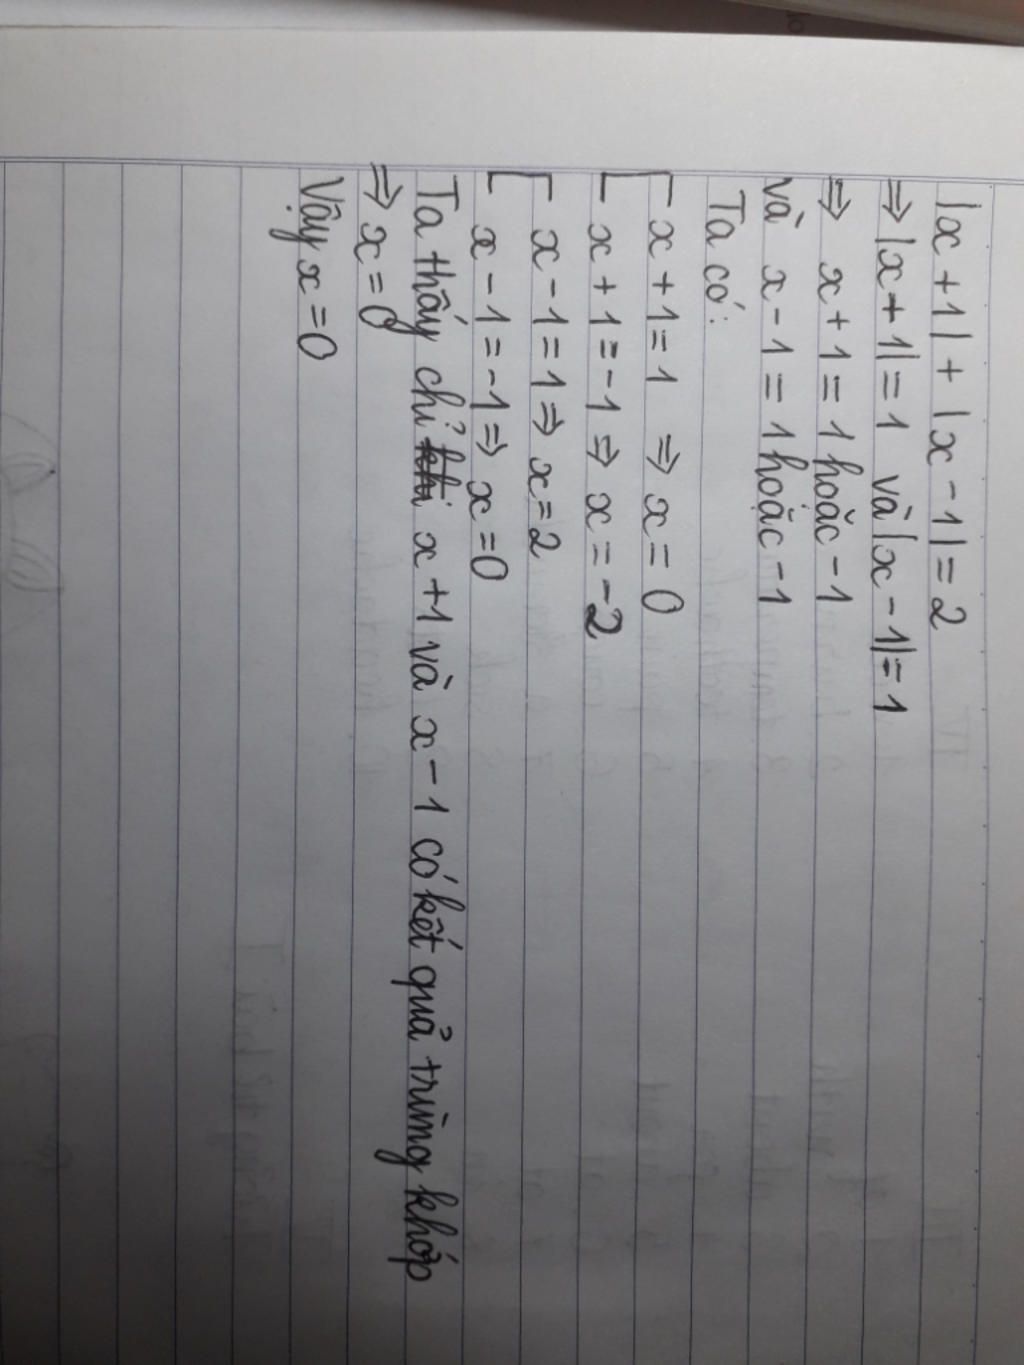 |x + 1| + |x - 1| = 2
⇒ |x + 1| = 1 và |x - 1| = 1
⇒ x + 1 = 1 hoặc -1
và x - 1 = 1 hoặc -1
Ta có:
[ x + 1 = 1 ⇒ x = 0
[ x + 1 = -1 ⇒ x = -2
[ x - 1 = 1 ⇒ x = 2
[ x - 1 = -1 ⇒ x = 0
Ta thấy chỉ x + 1 và x - 1 có kết quả trùng khớp
⇒ x = 0
Vậy x = 0